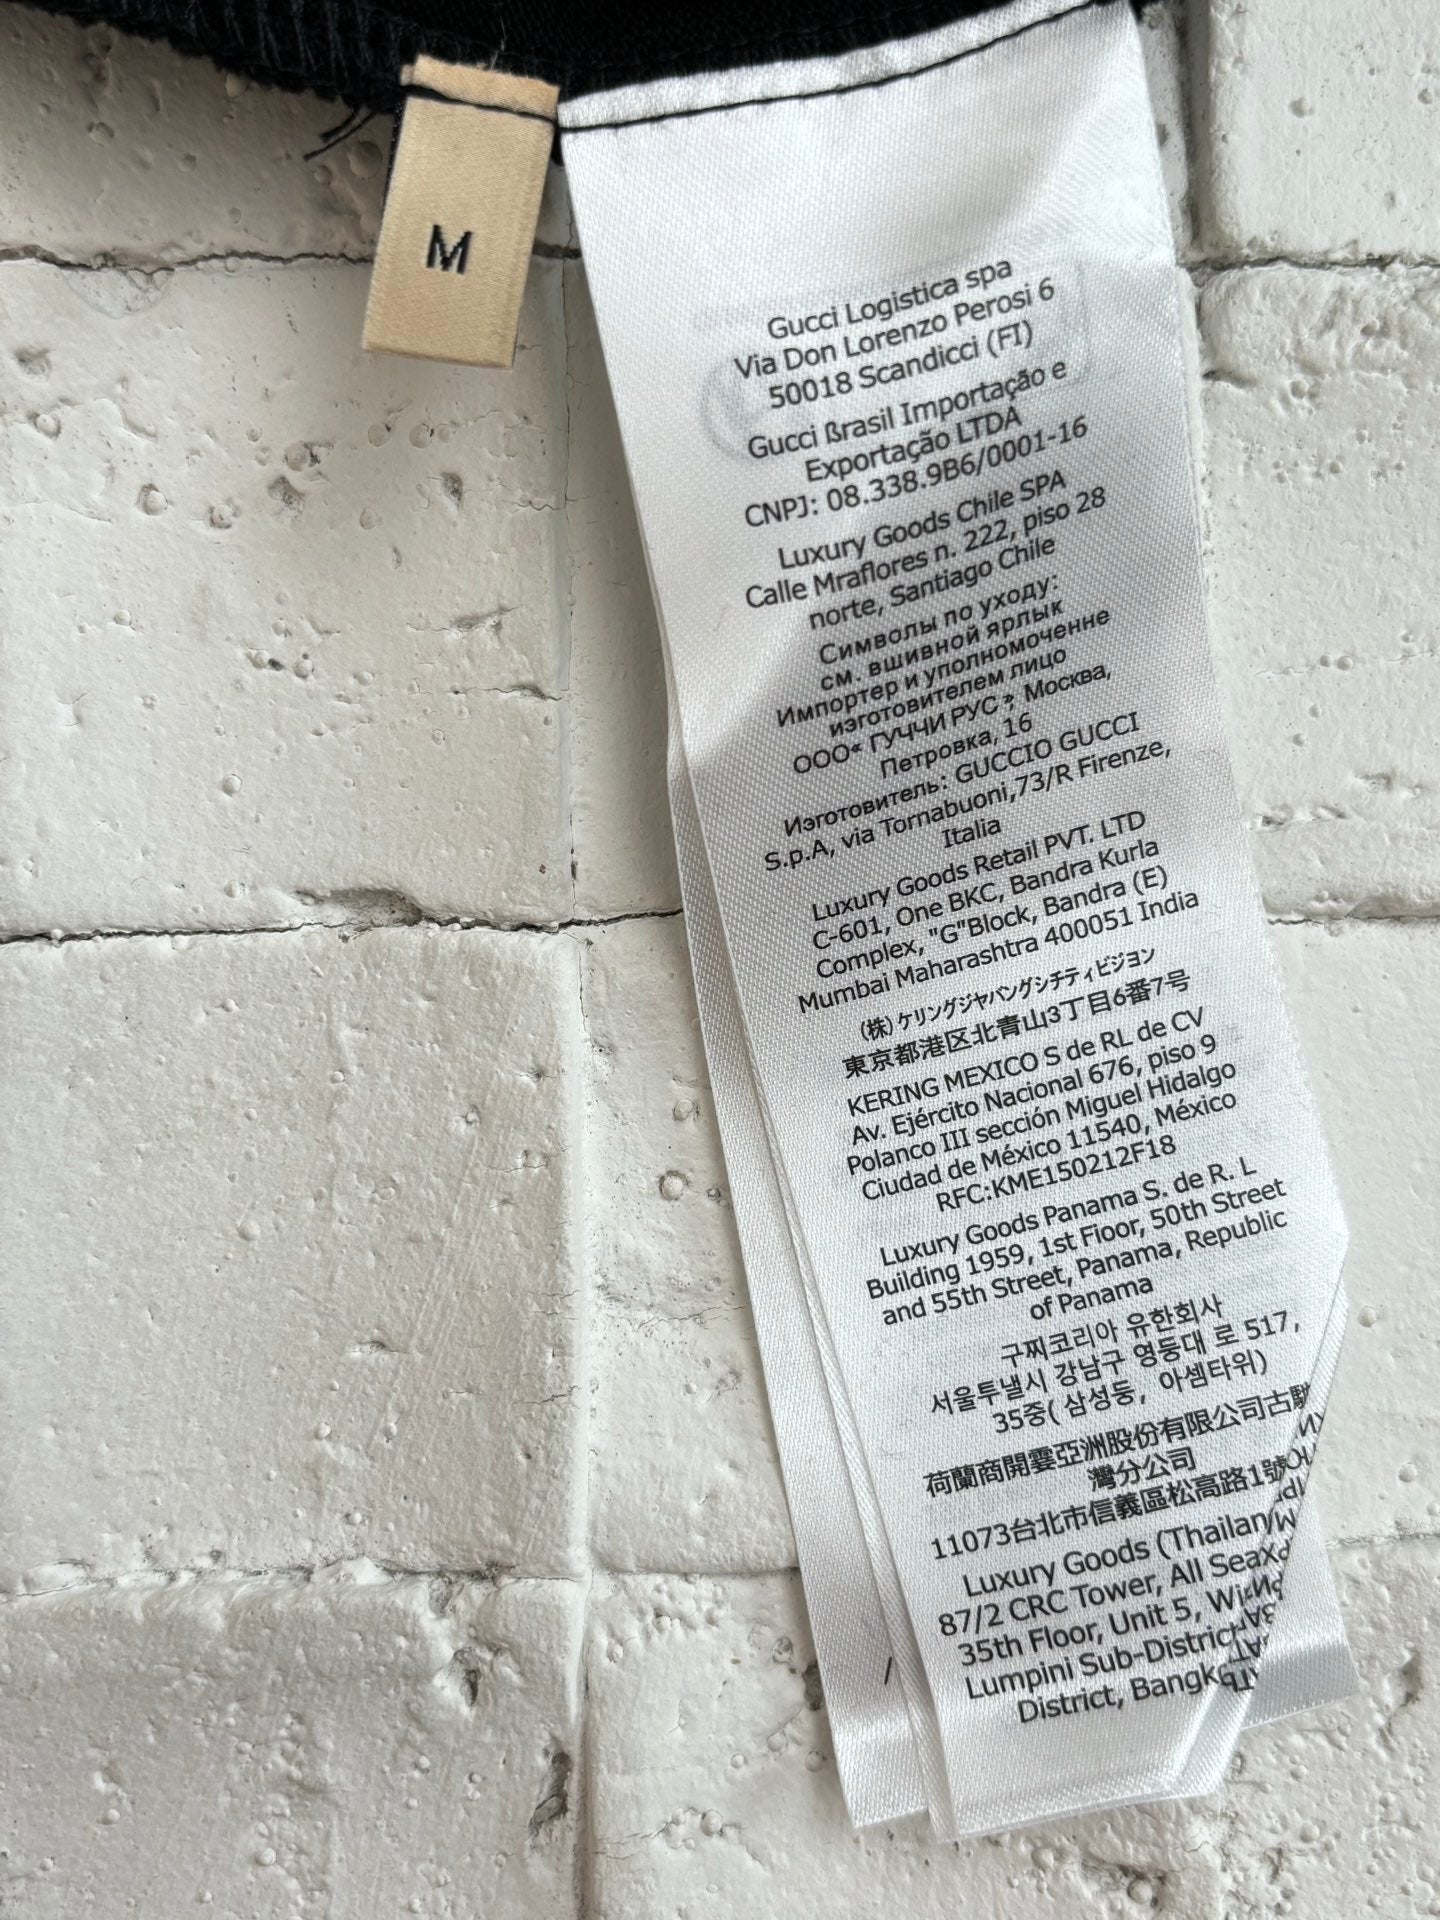 M
Gucci Logistica spa
Via Don Lorenzo Perosi 6
50018 Scandicci (FI)
Gucci ßrasil Importação e
Exportação LTDA
CNPJ: 08.338.9B6/0001-16
Luxury Goods Chile SPA
Calle Mraflores n. 222, piso 28
norte, Santiago Chile
Символы по уходу:
см. вшивной ярлык
Импортер и уполномоченне
изготовителем лицо
ООО« ГУЧЧИ РУС », Москва,
Петровка, 16
Изготовитель: GUCCIO GUCCI
S.p.A, via Tornabuoni,73/R Firenze,
Italia
Luxury Goods Retail PVT. LTD
C-601, One BKC, Bandra Kurla
Complex, "G"Block, Bandra (E)
Mumbai Maharashtra 400051 India
(株)ケリングジャバングシチティビジョン
東京都港区北青山3丁目6番7号
KERING MEXICO S de RL de CV
Av. Ejército Nacional 676, piso 9
Polanco III sección Miguel Hidalgo
Ciudad de México 11540, México
RFC:KME150212F18
Luxury Goods Panama S. de R. L
Building 1959, 1st Floor, 50th Street
and 55th Street, Panama, Republic
of Panama
구찌코리아 유한회사
서울투낼시 강남구 영등대 로 517,
35중( 삼성둥, 아셈타위)
荷蘭商開雲亞洲股份有限公司古馳
灣分公司
11073台北市信義區松高路1號
Luxury Goods (Thailan
87/2 CRC Tower, All Sea
35th Floor, Unit 5, Wi
Lumpini Sub-District
District, Bangk